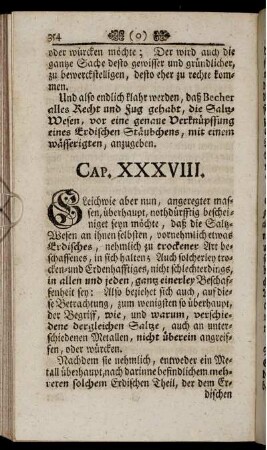 314 (o)
oder würcken möchte; Der wird auch die
gantze Sache desto gewisser und gründlicher,
zu bewerckstelligen, desto eher zu rechte kom-
men.
Und also endlich klahr werden, daß Becher
alles Recht und Fug gehabt, die Saltz-
Wesen, vor eine genaue Verknüpffung
eines Erdischen Stäubchens, mit einem
wässerigten, anzugeben.
CAP. XXXVIII.
Gleichwie aber nun, angeregter mas-
sen, überhaupt, nothdürfftig beschei-
niget seyn möchte, daß die Saltz-
Wesen an ihnen selbsten, vornehmlich etwas
Erdisches, nehmlich zu trockener Art be-
schaffenes, in sich halten; Auch solcherley tro-
cken- und Erdenhafftiges, nicht schlechterdings,
in allen und jeden, gantz einerley Beschaf-
fenheit sey: Also beziehet sich auch, auf die-
se Betrachtung, zum wenigsten so überhaupt,
der Begriff, wie, und warum, verschie-
dene dergleichen Saltze, auch an unter-
schiedenen Metallen, nicht überein angreif-
fen, oder würcken.
Nachdem sie nehmlich, entweder ein Me-
tall überhaupt, nach darinne befindlichem meh-
reren solchem Erdischen Theil, der dem Er-
dischen